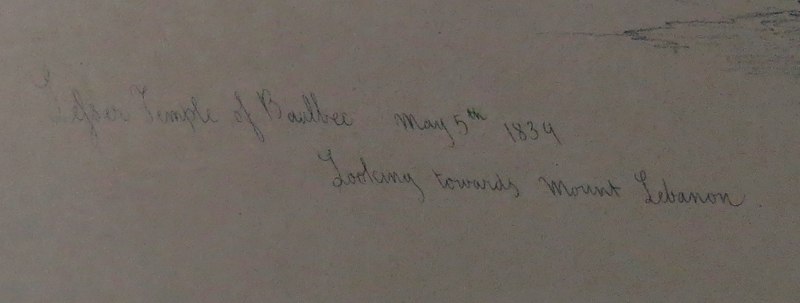 Lesser Temple of Baalbec May 5th 1839
Looking towards Mount Lebanon.